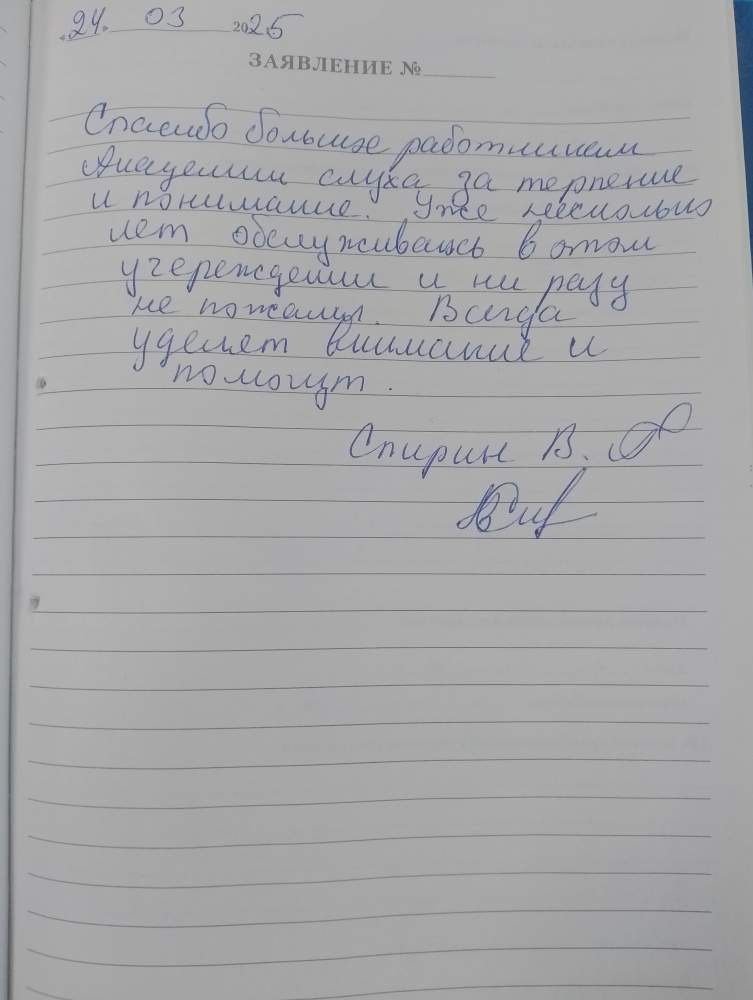 24. 03 2025
ЗАЯВЛЕНИЕ №
Спасибо большое работникам
Академии слуха за терпение
и понимание. Уже несколько
лет обслуживаюсь в этом
учереждении и ни разу
не пожалел. Всегда
уделят внимание и
помогут.
Спирин В.